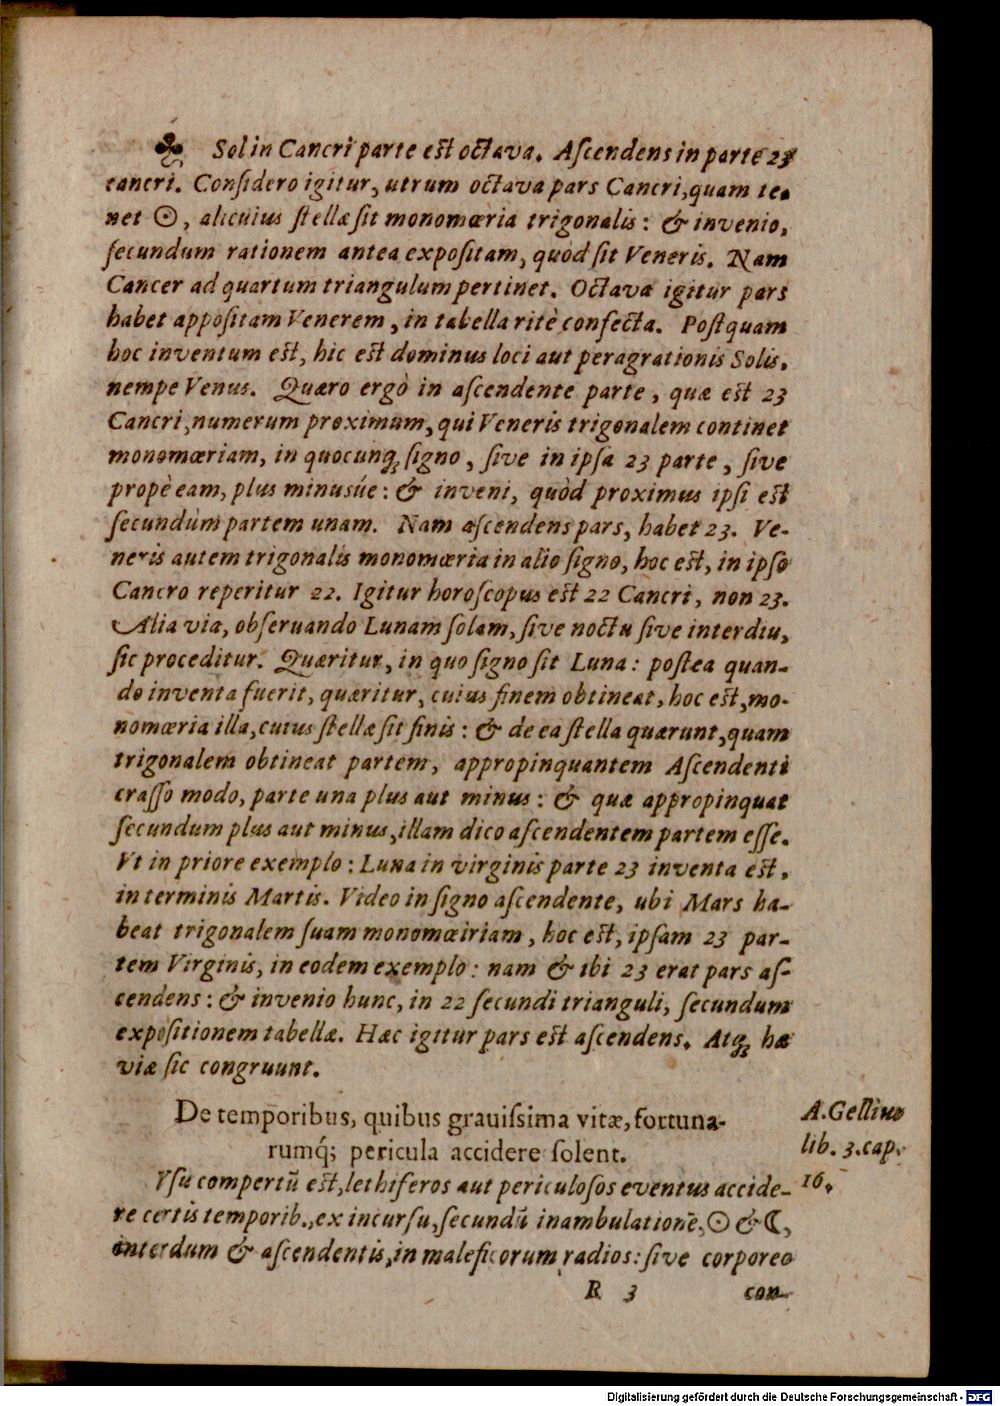 ♣ Sol in Cancri parte est octava. Aſcendens in parte 23
cancri. Conſidero igitur, utrum octava pars Cancri, quam te-
net ☉, alicuius ſtellæ ſit monomœria trigonalis: & invenio,
ſecundum rationem antea expoſitam, quòd ſit Veneris. Nam
Cancer ad quartum triangulum pertinet. Octava igitur pars
habet appoſitam Venerem, in tabella ritè confecta. Poſtquam
hoc inventum est, hic est dominus loci aut peragrationis Solis,
nempe Venus. Quæro ergò in aſcendente parte, quæ est 23
Cancri, numerum proximum, qui Veneris trigonalem continet
monomœriam, in quocunq; ſigno, ſive in ipſa 23 parte, ſive
propè eam, plus minusúe: & inveni, quòd proximus ipſi est
ſecundùm partem unam. Nam aſcendens pars, habet 23. Ve-
neris autem trigonalis monomœria in alio ſigno, hoc est, in ipſo
Cancro reperitur 22. Igitur horoſcopus est 22 Cancri, non 23.
Alia via, obſeruando Lunam ſolam, ſive noctu ſive interdiu,
ſic proceditur. Quæritur, in quo ſigno ſit Luna: poſtea quan-
do inventa fuerit, quæritur, cuius finem obtineat, hoc est, mo-
nomœria illa, cuius ſtellæ ſit finis: & de ea ſtella quærunt, quam
trigonalem obtineat partem, appropinquantem Aſcendenti
craſſo modo, parte una plus aut minus: & quæ appropinquat
ſecundum plus aut minus, illam dico aſcendentem partem eſſe.
Vt in priore exemplo: Luna in virginis parte 23 inventa est,
in terminis Martis. Video in ſigno aſcendente, ubi Mars ha-
beat trigonalem ſuam monomœiriam, hoc est, ipſam 23 par-
tem Virginis, in eodem exemplo: nam & ibi 23 erat pars aſ-
cendens: & invenio hunc, in 22 ſecundi trianguli, ſecundum
expoſitionem tabellæ. Hæc igitur pars est aſcendens. Atq; hæ
viæ ſic congruunt.
De temporibus, quibus grauiſsima vitæ, fortuna-
rumq́; pericula accidere ſolent.
A. Gellius
lib. 3. cap.
16.
Vſu compertū est, lethiferos aut periculoſos eventus accide-
re certis temporib., ex incurſu, ſecundū inambulationē, ☉ & ☾,
interdum & aſcendentis, in maleficorum radios: ſive corporeo
R 3
con-
Digitalisierung gefördert durch die Deutsche Forschungsgemeinschaft - DFG